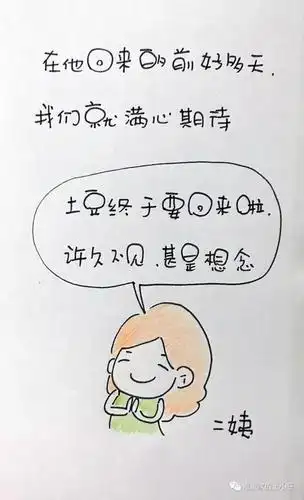 在他回来的前好多天.
我们就满心期待
土豆终于要回来啦.
许久不见.甚是想念
二姨